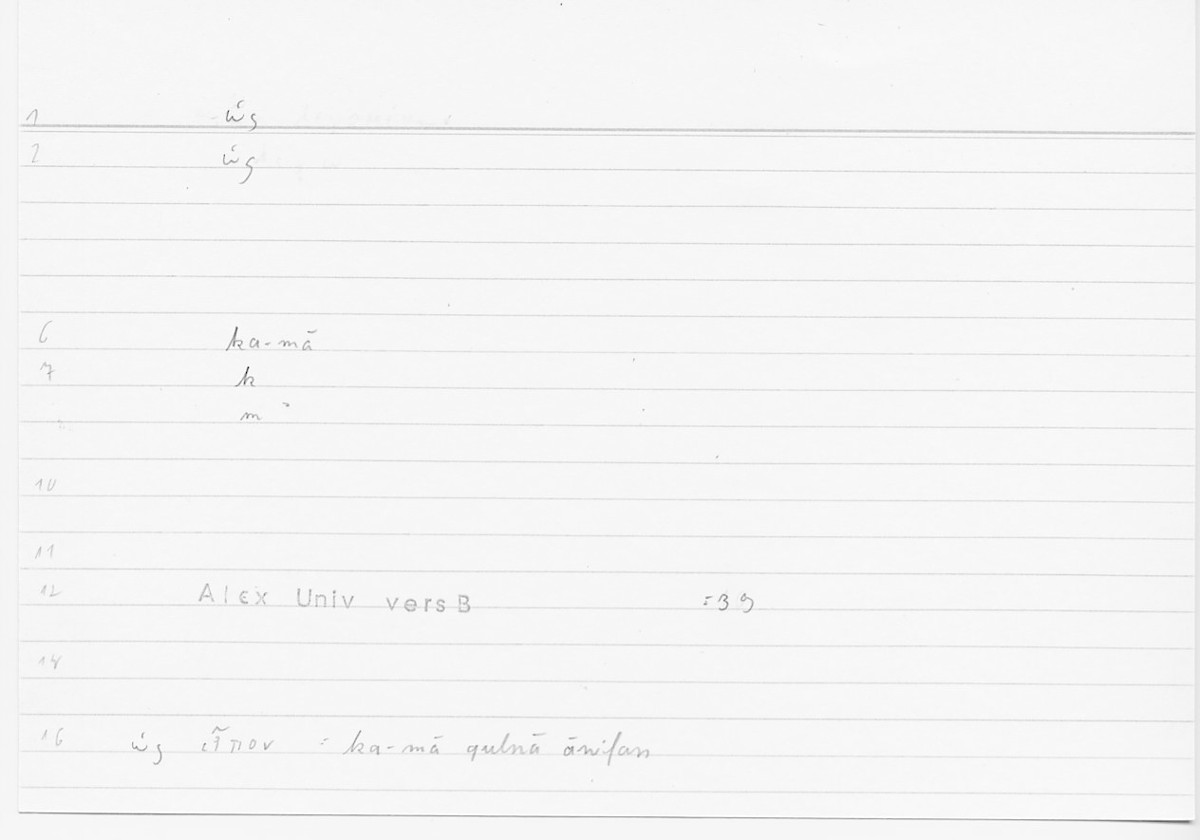 1 ὡς
2 ὡς
6 ka-mā
7 k
m
10
11
12 Alex Univ vers B =39
14
16 ὡς εἶπον = ka-mā qulnā ānifan